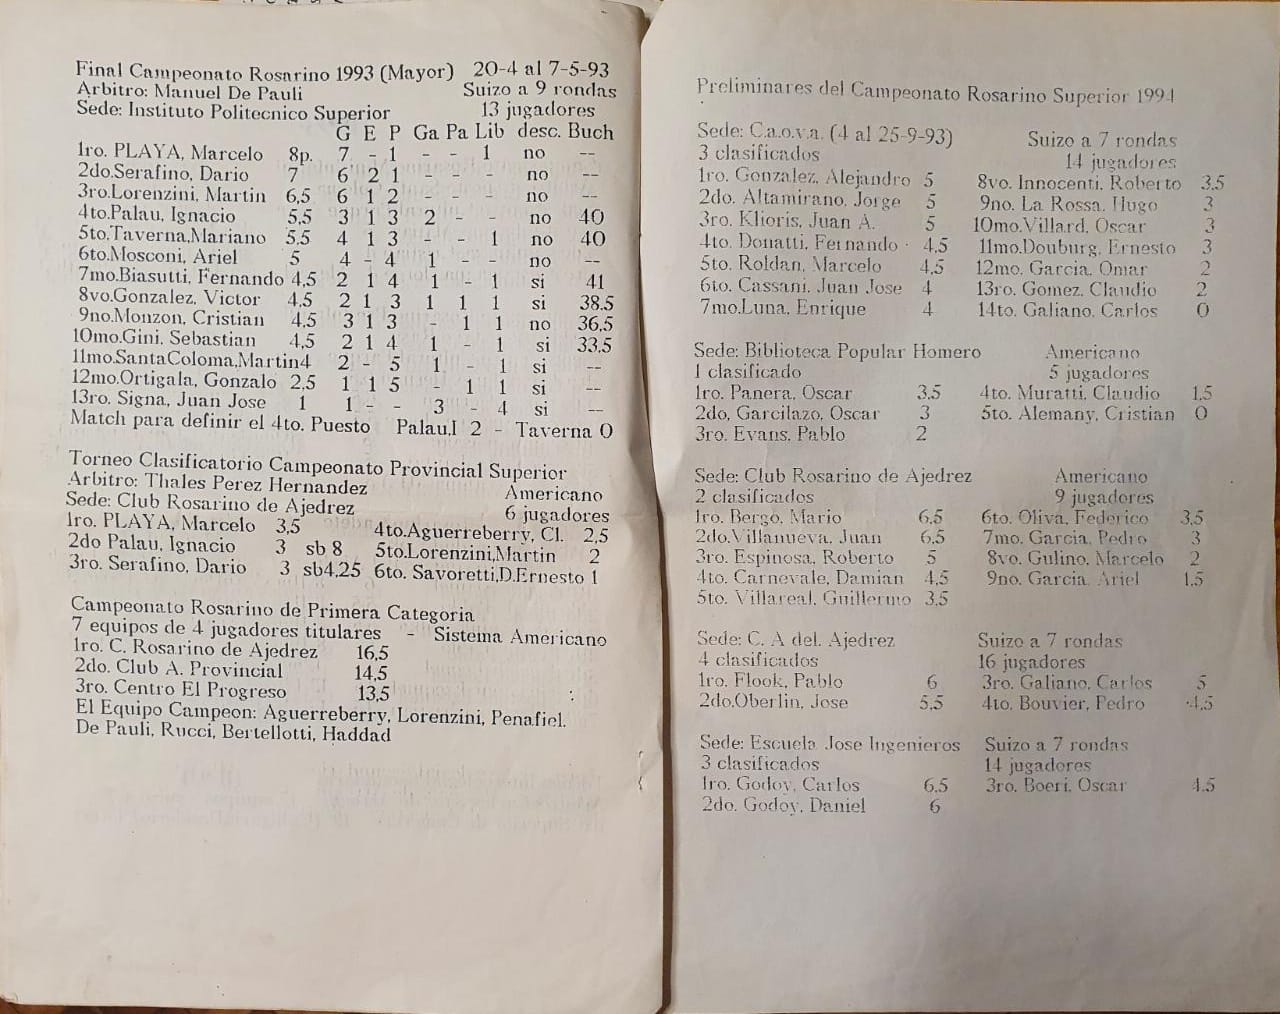 Final Campeonato Rosarino 1993 (Mayor) 20-4 al 7-5-93
Arbitro: Manuel De Pauli Suizo a 9 rondas
Sede: Instituto Politecnico Superior 13 jugadores
G E P Ga Pa Lib desc. Buch
1ro. PLAYA, Marcelo 8p. 7 - 1 - - 1 no --
2do.Serafino, Dario 7 6 2 1 - - - no --
3ro.Lorenzini, Martin 6,5 6 1 2 - - - no --
4to.Palau, Ignacio 5,5 3 1 3 2 - - no 40
5to.Taverna,Mariano 5,5 4 1 3 - - 1 no 40
6to.Mosconi, Ariel 5 4 - 4 1 - - no --
7mo.Biasutti, Fernando 4,5 2 1 4 1 - 1 si 41
8vo.Gonzalez, Victor 4,5 2 1 3 1 1 1 si 38.5
9no.Monzon, Cristian 4,5 3 1 3 - 1 1 no 36,5
10mo.Gini, Sebastian 4,5 2 1 4 1 - 1 si 33,5
11mo.SantaColoma,Martin4 2 - 5 1 - 1 si --
12mo.Ortigala, Gonzalo 2,5 1 1 5 - 1 1 si --
13ro. Signa, Juan Jose 1 1 - - 3 - 4 si --
Match para definir el 4to. Puesto Palau,I 2 - Taverna 0
Torneo Clasificatorio Campeonato Provincial Superior
Arbitro: Thales Perez Hernandez Americano
Sede: Club Rosarino de Ajedrez 6 jugadores
1ro. PLAYA, Marcelo 3,5 4to.Aguerreberry, Cl. 2,5
2do Palau, Ignacio 3 sb 8 5to.Lorenzini,Martin 2
3ro. Serafino, Dario 3 sb4,25 6to. Savoretti,D.Ernesto 1
Campeonato Rosarino de Primera Categoria
7 equipos de 4 jugadores titulares - Sistema Americano
1ro. C. Rosarino de Ajedrez 16,5
2do. Club A. Provincial 14,5
3ro. Centro El Progreso 13,5
El Equipo Campeon: Aguerreberry, Lorenzini, Penafiel.
De Pauli, Rucci, Bertellotti, Haddad
Preliminares del Campeonato Rosarino Superior 1994
Sede: C.a.o.v.a. (4 al 25-9-93) Suizo a 7 rondas
3 clasificados 14 jugadores
1ro. Gonzalez, Alejandro 5 8vo. Innocenti, Roberto 3,5
2do. Altamirano, Jorge 5 9no. La Rossa, Hugo 3
3ro. Klioris, Juan A. 5 10mo.Villard, Oscar 3
4to. Donatti, Fernando 4,5 11mo.Douburg, Ernesto 3
5to. Roldan, Marcelo 4,5 12mo. Garcia, Omar 2
6to. Cassani, Juan Jose 4 13ro. Gomez, Claudio 2
7mo.Luna, Enrique 4 14to. Galiano, Carlos 0
Sede: Biblioteca Popular Homero Americano
1 clasificado 5 jugadores
1ro. Panera, Oscar 3.5 4to. Muratti, Claudio 1,5
2do, Garcilazo, Oscar 3 5to. Alemany, Cristian 0
3ro. Evans, Pablo 2
Sede: Club Rosarino de Ajedrez Americano
2 clasificados 9 jugadores
1ro. Bergo, Mario 6,5 6to. Oliva, Federico 3,5
2do.Villanueva, Juan 6,5 7mo. Garcia, Pedro 3
3ro. Espinosa, Roberto 5 8vo. Gulino, Marcelo 2
4to. Carnevale, Damian 4,5 9no. Garcia, Ariel 1,5
5to. Villareal, Guillermo 3,5
Sede: C. A del. Ajedrez Suizo a 7 rondas
4 clasificados 16 jugadores
1ro. Flook, Pablo 6 3ro. Galiano, Carlos 5
2do.Oberlin, Jose 5,5 4to. Bouvier, Pedro 4,5
Sede: Escuela Jose Ingenieros Suizo a 7 rondas
3 clasificados 14 jugadores
1ro. Godoy, Carlos 6,5 3ro. Boeri, Oscar 4.5
2do. Godoy, Daniel 6